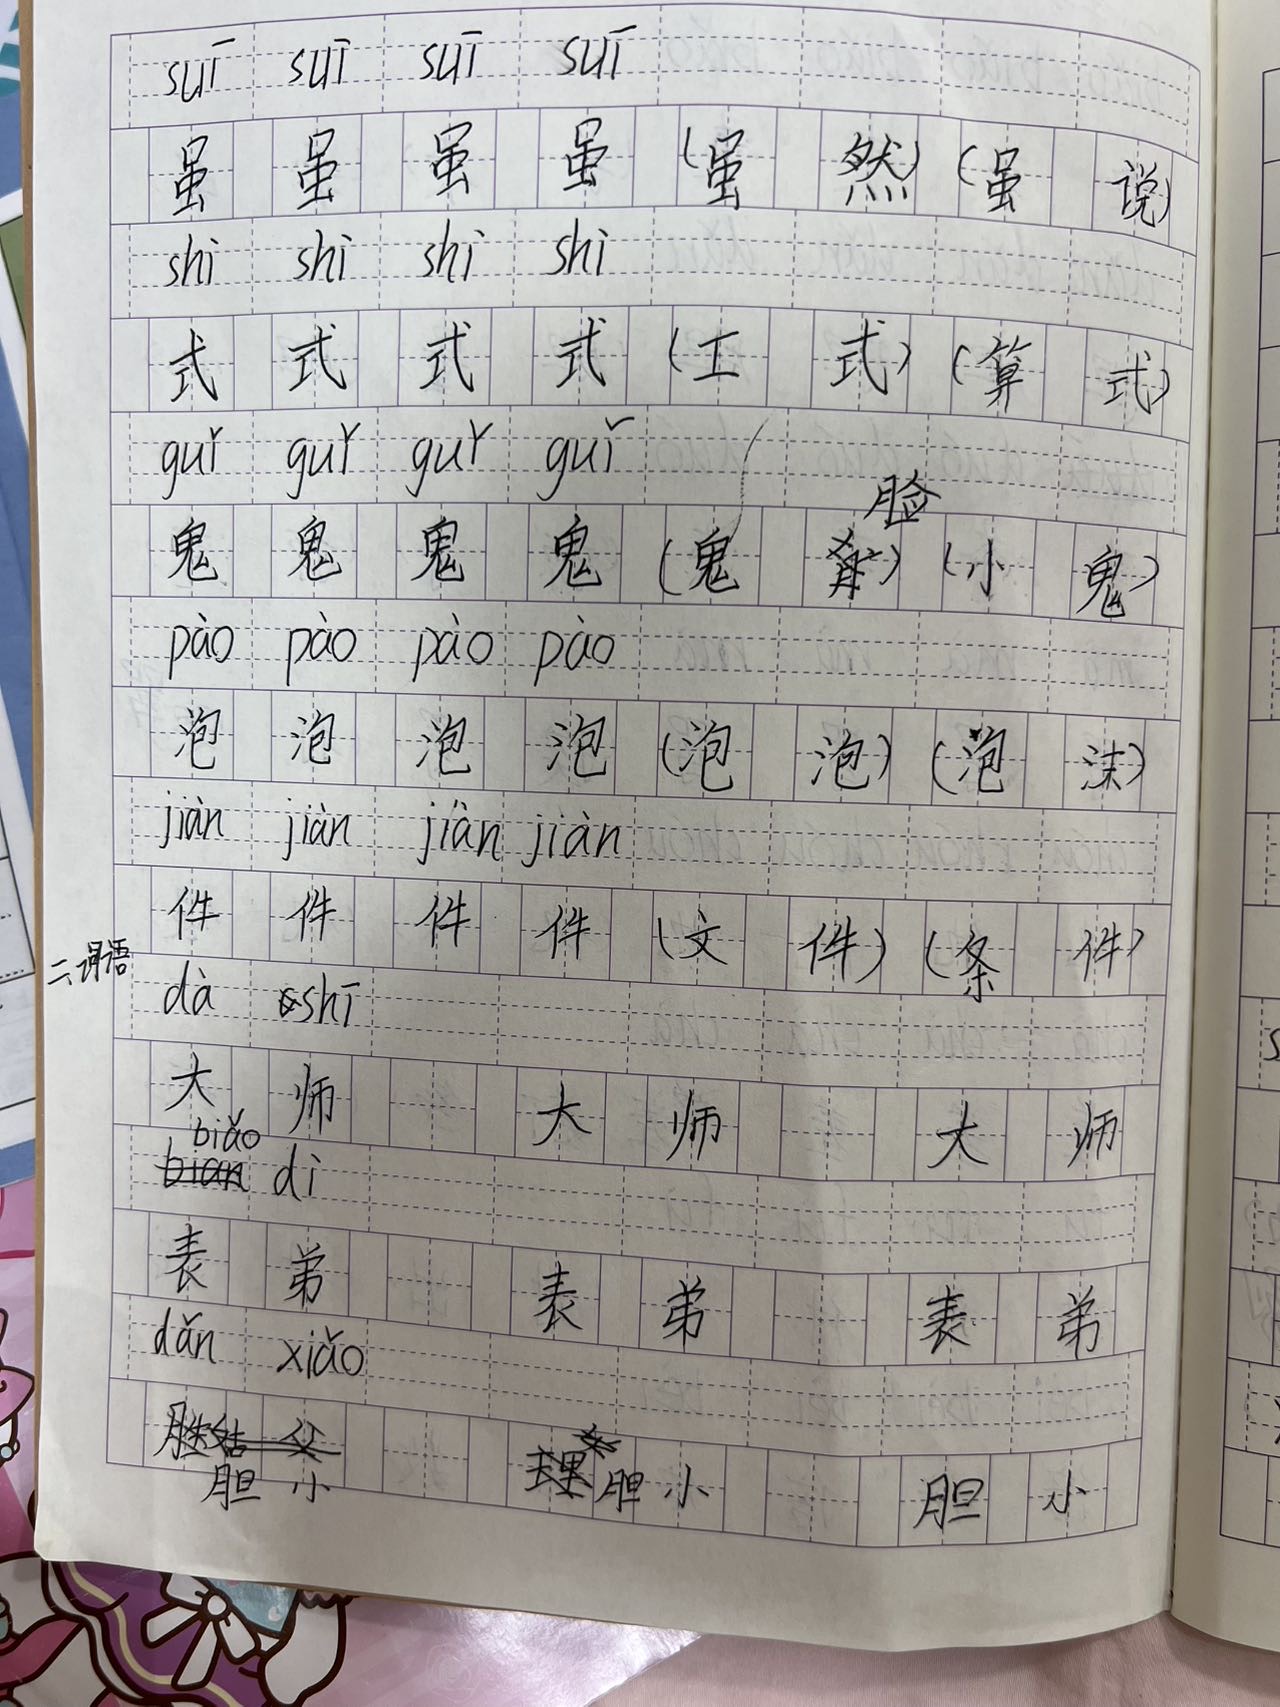 suī suī suī suī
虽 虽 虽 虽 (虽 然) (虽 说)
shì shì shì shì
式 式 式 式 (工 式) (算 式)
guǐ guǐ guǐ guǐ
脸
鬼 鬼 鬼 鬼 (鬼 ) (小 鬼)
pào pào pào pào
泡 泡 泡 泡 (泡 泡) (泡 沫)
jiàn jiàn jiàn jiàn
件 件 件 件 (文 件) (条 件)
二、词语
dà shī
大 师 大 师 大 师
biǎo
bian dì
表 弟 表 弟 表 弟
dǎn xiǎo
胆 小 胆 小 胆 小